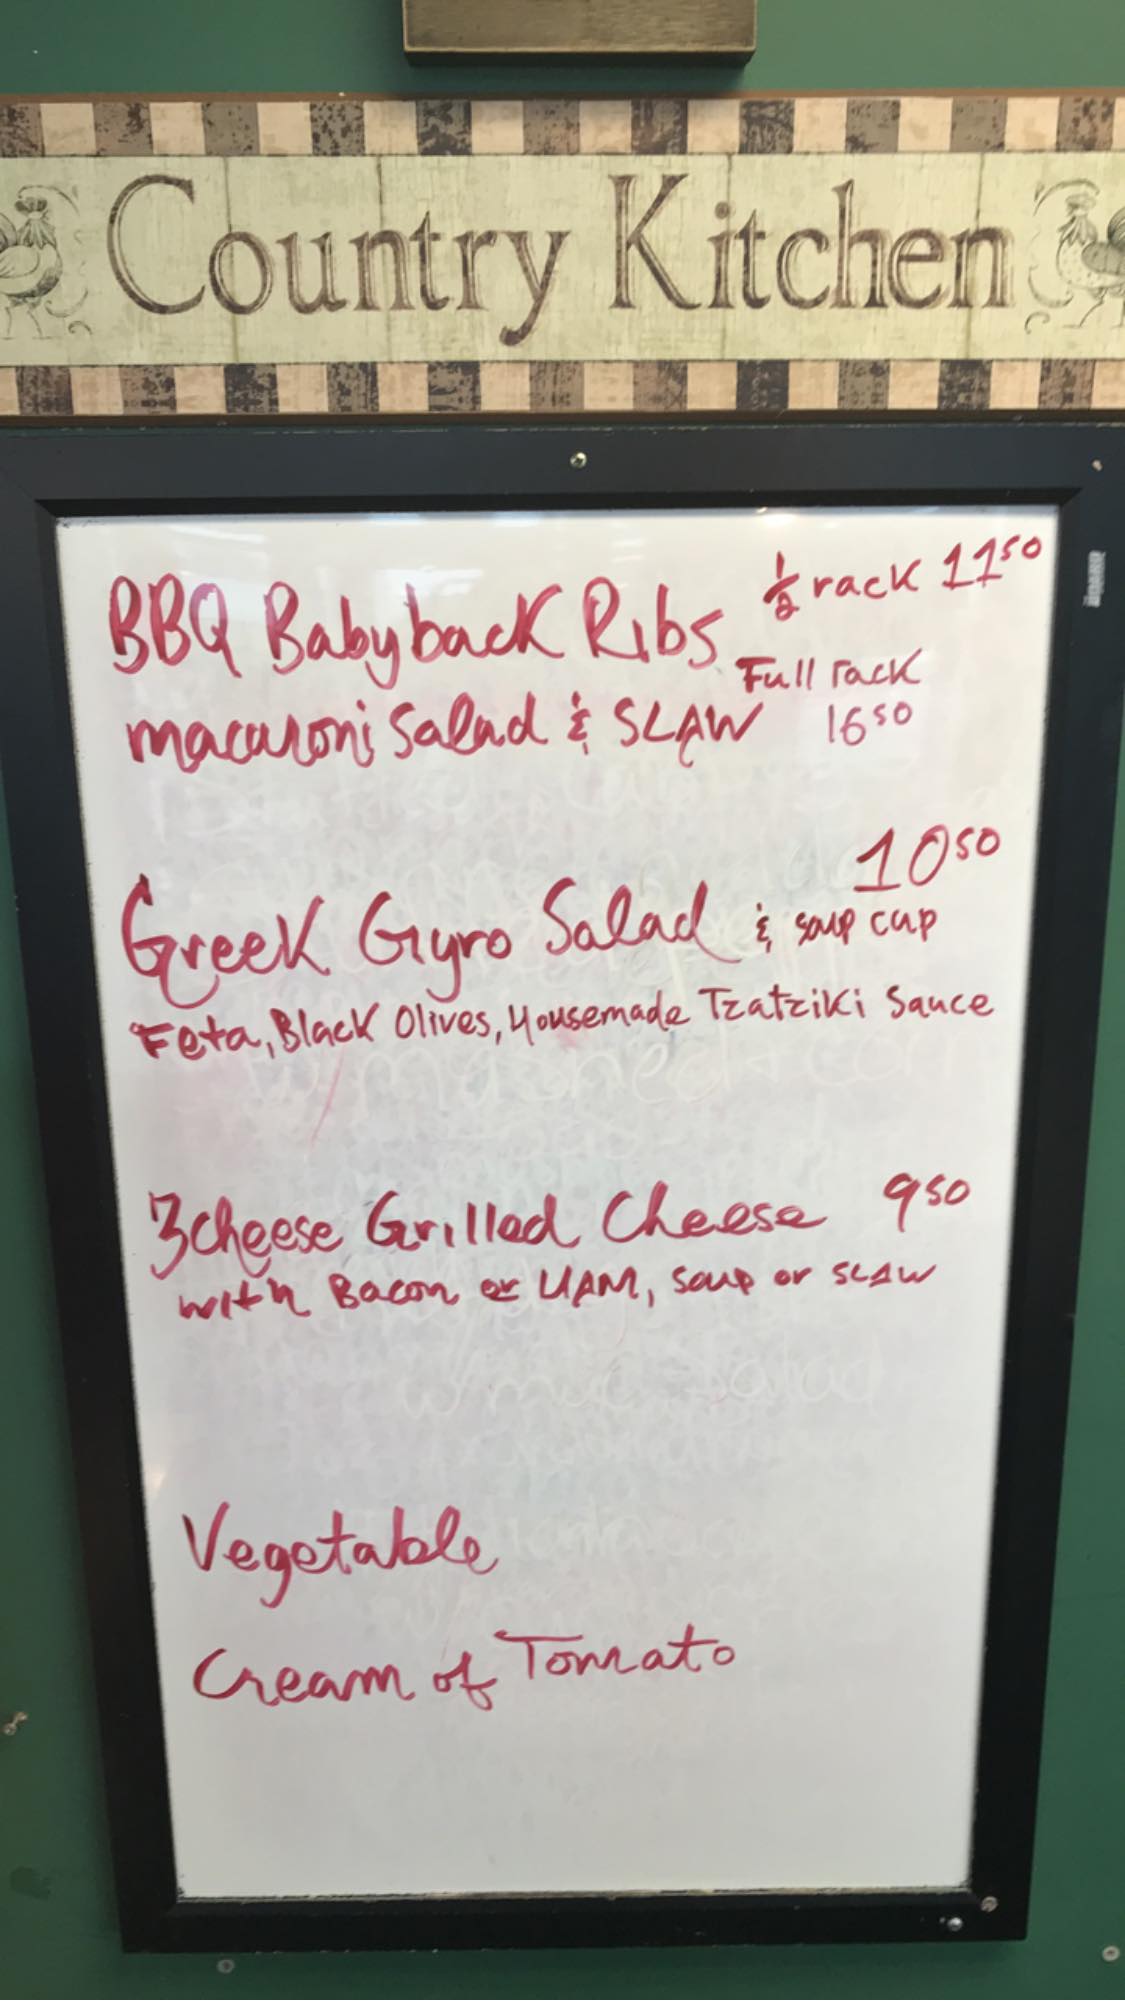 Country Kitchen
BBQ Babyback Ribs ½ rack 11⁵⁰
Full rack
macaroni Salad & SLAW 16⁵⁰
10⁵⁰
Greek Gyro Salad & soup cup
Feta, Black Olives, Housemade Tzatziki Sauce
3 Cheese Grilled Cheese 9⁵⁰
with Bacon or HAM, soup or SLAW
Vegetable
Cream of Tomato